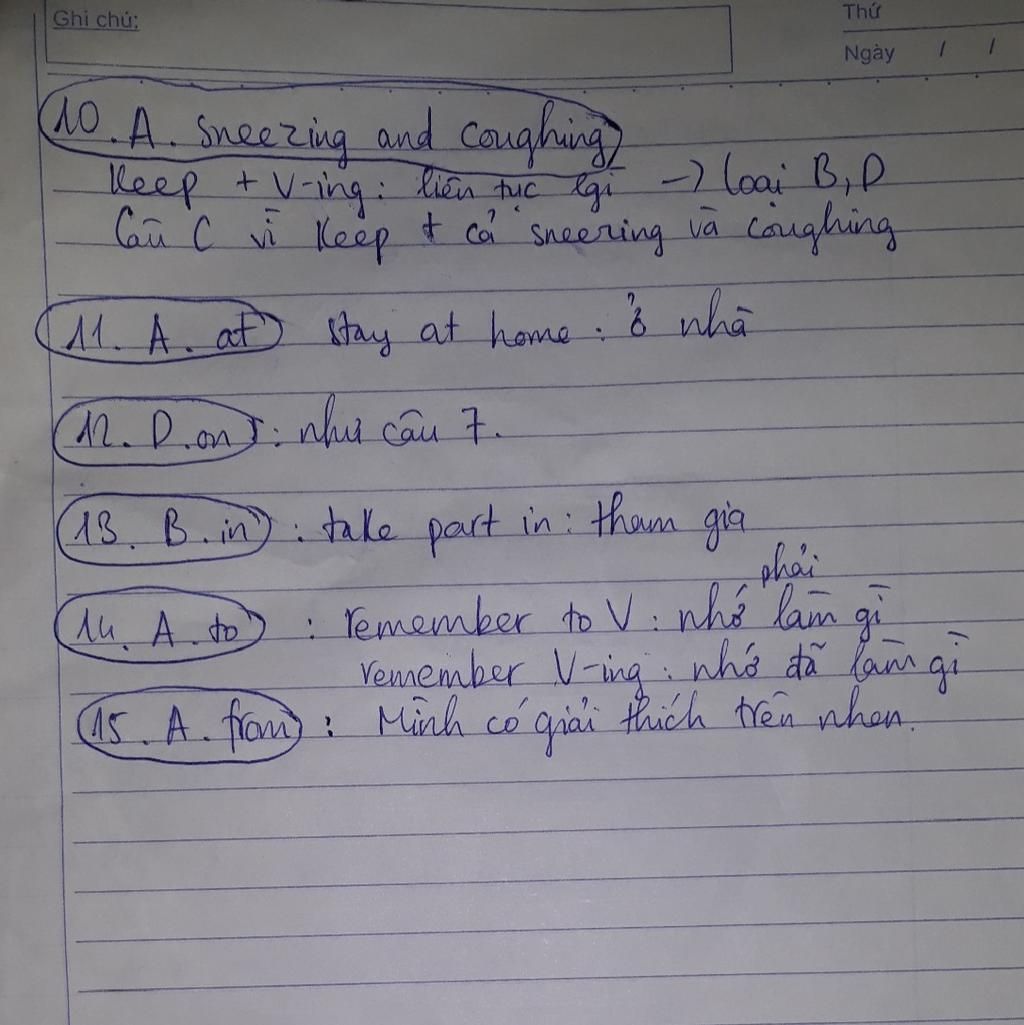 Ghi chú:
Thứ
Ngày / /
10. A. sneezing and coughing
Keep + V-ing: liên tục lgì -> loại B, D
Câu C vì Keep + cả sneezing và coughing
11. A. at stay at home: ở nhà
12. D. on: như câu 7.
13. B. in: take part in: tham gia
phải
14. A. to: remember to V: nhớ làm gì
remember V-ing: nhớ đã làm gì
15. A. from: Mình có giải thích trên nhen.